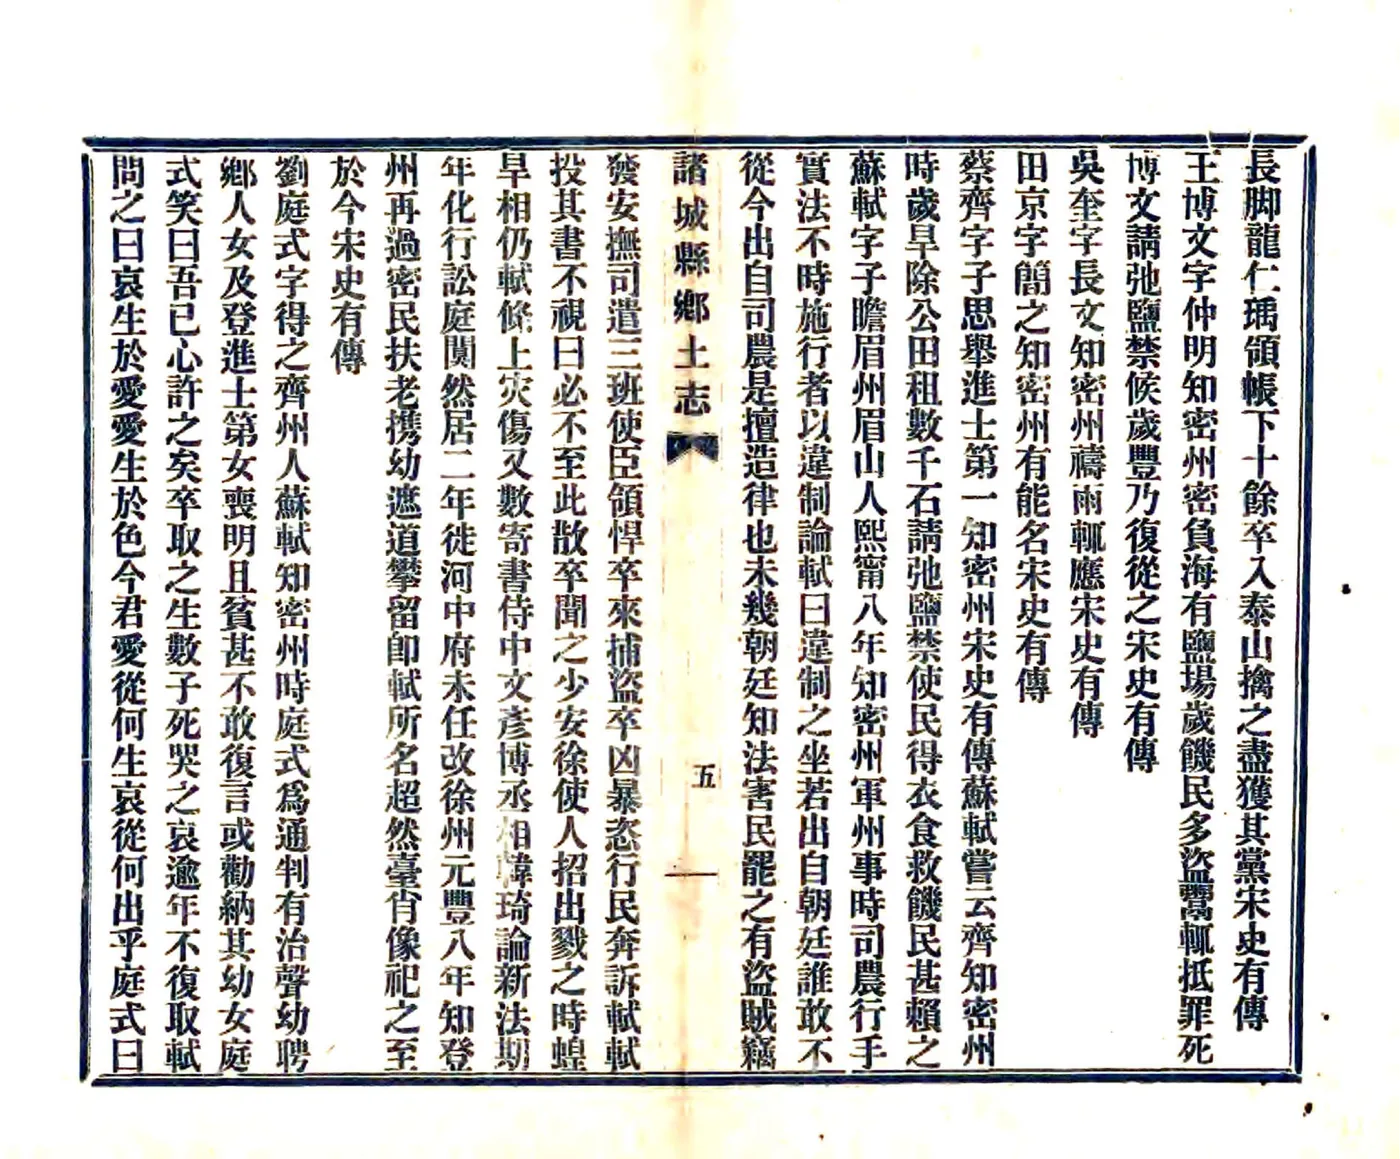 長脚龍仁瑀領帳下十餘卒入泰山擒之盡獲其黨宋史有傳
王博文字仲明知密州密負海有鹽場歲饑民多盜鬻輒抵罪死
博文請弛鹽禁候歲豐乃復從之宋史有傳
吳奎字長文知密州禱雨輒應宋史有傳
田京字簡之知密州有能名宋史有傳
蔡齊字子思舉進士第一知密州宋史有傳蘇軾嘗云齊知密州
時歲旱除公田租數千石請弛鹽禁使民得衣食救饑民甚賴之
蘇軾字子瞻眉州眉山人熙甯八年知密州軍州事時司農行手
實法不時施行者以違制論軾曰違制之坐若出自朝廷誰敢不
從今出自司農是擅造律也未幾朝廷知法害民罷之有盜賊竊
諸城縣鄉土志
五
發安撫司遣三班使臣領悍卒來捕盜卒凶暴恣行民奔訴軾軾
投其書不視曰必不至此散卒聞之少安徐使人招出戮之時蝗
旱相仍軾條上灾傷又數寄書侍中文彥博丞相韓琦論新法期
年化行訟庭闃然居二年徙河中府未任改徐州元豐八年知登
州再過密民扶老携幼遮道攀留卽軾所名超然臺肖像祀之至
於今宋史有傳
劉庭式字得之齊州人蘇軾知密州時庭式爲通判有治聲幼聘
鄉人女及登進士第女喪明且貧甚不敢復言或勸納其幼女庭
式笑曰吾已心許之矣卒取之生數子死哭之哀逾年不復取軾
問之曰哀生於愛愛生於色今君愛從何生哀從何出乎庭式曰